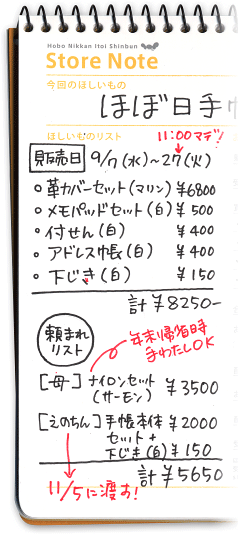 Hobo Nikkan Itoi Shinbun
Store Note
今回のほしいもの
ほぼ日手
ほしいものリスト
11:00マデ!
販売日 9/7(水)~27(火)
○革カバーセット(マリン) ¥6800
○メモパッドセット(白) ¥500
○付せん(白) ¥400
○アドレス帳(白) ¥400
○下じき(白) ¥150
計¥8250-
頼まれ
リスト
年末帰省時
手わたしOK
[母] ナイロンセット
(サーモン) ¥3500
[えのちん] 手帳本体 ¥2000
セット+
下じき(白) ¥150
計¥5650
11/5に渡す!